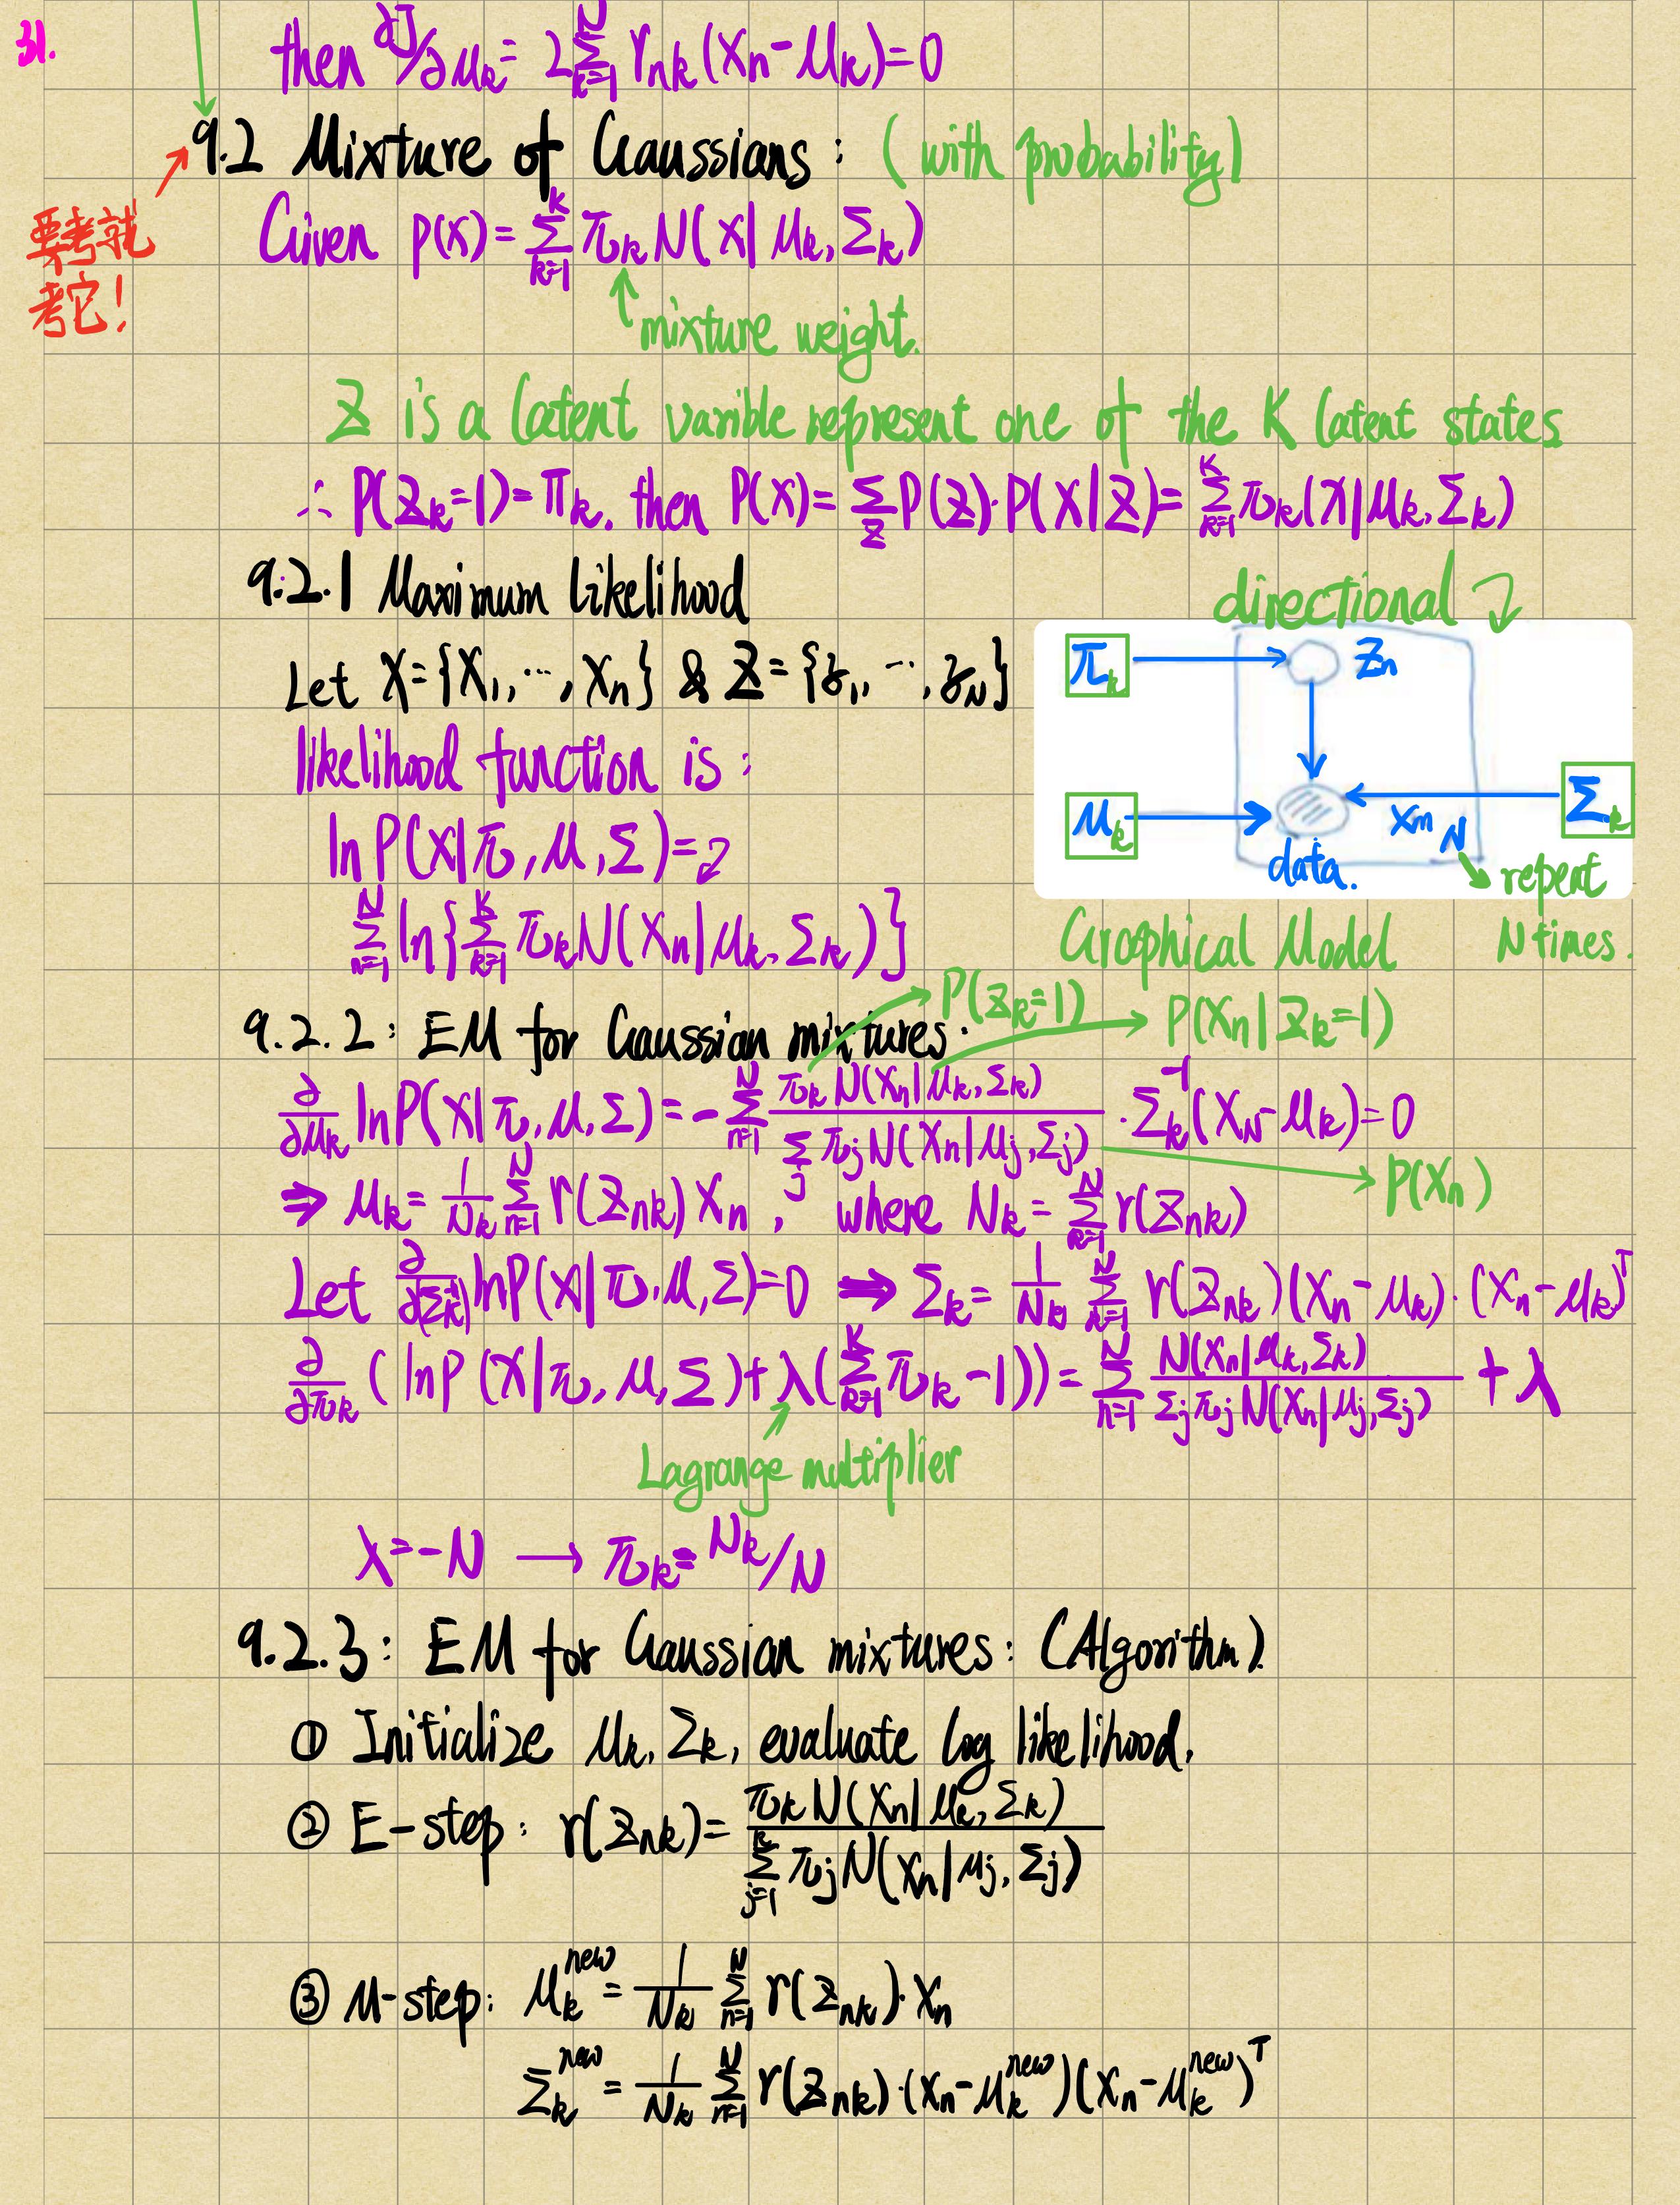 31.
then ∂J/∂μk = 2 Σ_{k=1}^{N} r_{nk}(x_n - μ_k) = 0
9.2 Mixture of Gaussians : (with probability)
要考就
考它!
Given p(x) = Σ_{k=1}^{K} π_k N(x | μ_k, Σ_k)
mixture weight.
Z is a latent varible represent one of the K latent states
∴ P(Z_k=1) = π_k. then P(X) = Σ_Z P(Z)·P(X|Z) = Σ_{k=1}^{K} π_k(x|μ_k, Σ_k)
9.2.1 Maximum Likelihood
directional
Let X = {X_1, ..., X_n} & Z = {z_1, ..., z_N}
π_k
Z_n
μ_k
Σ_k
x_n
N
data.
repeat
N times.
Graphical Model
likelihood function is :
ln P(X|π, μ, Σ) =
Σ_{n=1}^{N} ln{Σ_{k=1}^{K} π_k N(X_n | μ_k, Σ_k)}
P(Z_k=1)
P(X_n | Z_k=1)
9.2.2 : EM for Gaussian mixtures.
∂/∂μ_k ln P(X|π, μ, Σ) = -Σ_{n=1}^{N} π_k N(X_n|μ_k, Σ_k) / Σ_j π_j N(X_n|μ_j, Σ_j) · Σ_k^{-1}(X_N - μ_k) = 0
P(X_n)
⇒ μ_k = 1/N_k Σ_{n=1}^{N} r(Z_{nk}) X_n , where N_k = Σ_{k=1}^{N} r(Z_{nk})
Let ∂/∂(Σ_k^{-1}) ln P(X|π, μ, Σ) = 0 ⇒ Σ_k = 1/N_k Σ_{n=1}^{N} r(Z_{nk})(X_n - μ_k)·(X_n - μ_k)^T
∂/∂π_k (ln P(X|π, μ, Σ) + λ(Σ_{k=1}^{K} π_k - 1)) = Σ_{n=1}^{N} N(X_n|μ_k, Σ_k) / Σ_j π_j N(X_n|μ_j, Σ_j) + λ
Lagrange multiplier
λ = -N → π_k = N_k/N
9.2.3 : EM for Gaussian mixtures : (Algorithm)
① Initialize μ_k, Σ_k, evaluate log likelihood.
② E-step : r(Z_{nk}) = π_k N(X_n|μ_k, Σ_k) / Σ_{j=1}^{K} π_j N(X_n|μ_j, Σ_j)
③ M-step : μ_k^{new} = 1/N_k Σ_{n=1}^{N} r(Z_{nk})·X_n
Σ_k^{new} = 1/N_k Σ_{n=1}^{N} r(Z_{nk})·(X_n - μ_k^{new})(X_n - μ_k^{new})^T